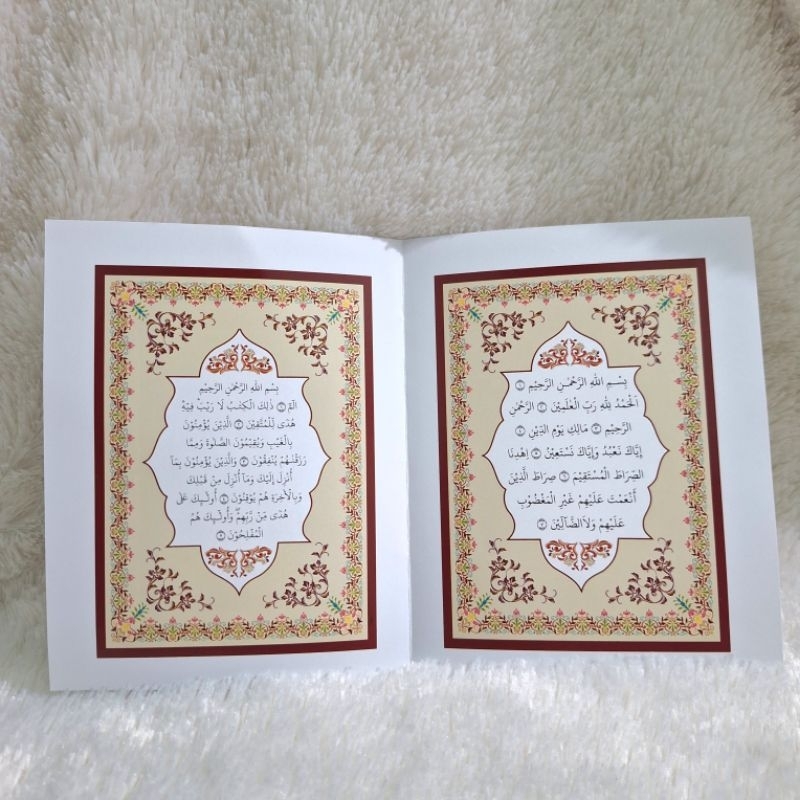 بِسْمِ اللّٰهِ الرَّحْمٰنِ الرَّحِيْمِ ۝١
اَلْحَمْدُ لِلّٰهِ رَبِّ الْعٰلَمِيْنَ ۝٢ الرَّحْمٰنِ
الرَّحِيْمِ ۝٣ مَالِكِ يَوْمِ الدِّيْنِ ۝٤
إِيَّاكَ نَعْبُدُ وَإِيَّاكَ نَسْتَعِيْنُ ۝٥ اِهْدِنَا
الصِّرَاطَ الْمُسْتَقِيْمَ ۝٦ صِرَاطَ الَّذِيْنَ
أَنْعَمْتَ عَلَيْهِمْ غَيْرِ الْمَغْضُوْبِ
عَلَيْهِمْ وَلَا الضَّآلِّيْنَ ۝٧
بِسْمِ اللّٰهِ الرَّحْمٰنِ الرَّحِيْمِ
الٓمّٓ ۝١ ذٰلِكَ الْكِتٰبُ لَا رَيْبَ فِيْهِ
هُدًى لِّلْمُتَّقِيْنَ ۝٢ الَّذِيْنَ يُؤْمِنُوْنَ
بِالْغَيْبِ وَيُقِيْمُوْنَ الصَّلٰوةَ وَمِمَّا
رَزَقْنٰهُمْ يُنْفِقُوْنَ ۝٣ وَالَّذِيْنَ يُؤْمِنُوْنَ بِمَآ
أُنْزِلَ إِلَيْكَ وَمَآ أُنْزِلَ مِنْ قَبْلِكَ
وَبِالْاٰخِرَةِ هُمْ يُوْقِنُوْنَ ۝٤ أُولٰٓئِكَ عَلٰى
هُدًى مِّنْ رَّبِّهِمْ وَأُولٰٓئِكَ هُمُ
الْمُفْلِحُوْنَ ۝٥